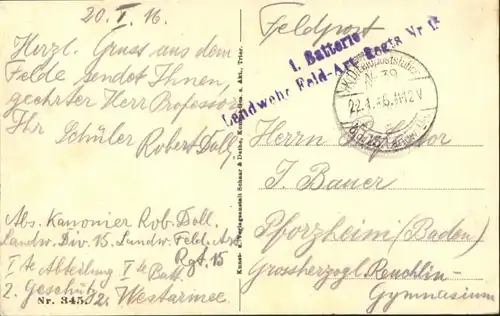 20. I. 16.
Herzl. Gruss aus dem
Felde sendet Ihnen,
geehrter Herr Professor
Ihr Schüler
Robert Doll.
Abs. Kanonier Rob. Doll.
Landw. Div. 15. Landw. Feld. Art.
Rgt. 15
I te Abteilung I te Batt.
2. Geschütz
Westarmee
Nr. 345
Kunst- u. Verlagsanstalt Schaar & Dathe, Komm.-Ges. a. Akt., Trier.
Feldpost
1. Batterie
Landwehr Feld-Art. Regts Nr. 15
K.D. Feldpoststation
Nr. 39
22.1.16.11-12V
Herrn Professor
J. Bauer
Pforzheim (Baden)
Grossherzogl. Reuchlin-
Gymnasium